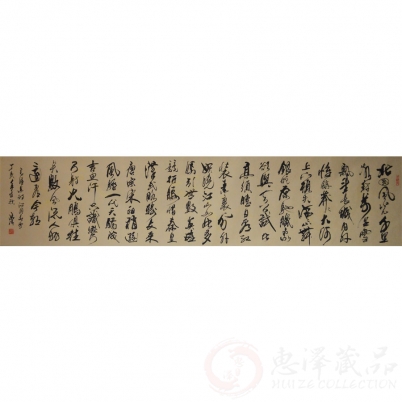 北国风光千里
冰封万里雪
飘望长城内外
惟余莽莽大河
上下顿失滔滔山舞
银蛇原驰蜡象
欲与天公试比
高须晴日看红
装素裹分外
妖娆江山如此多
娇引无数英雄
竞折腰惜秦皇
汉武略输文采
唐宗宋祖稍逊
风骚一代天骄成
吉思汗只识弯
弓射大雕俱往
矣数风流人物
还看今朝
惠泽藏品
HUIZE COLLECTION